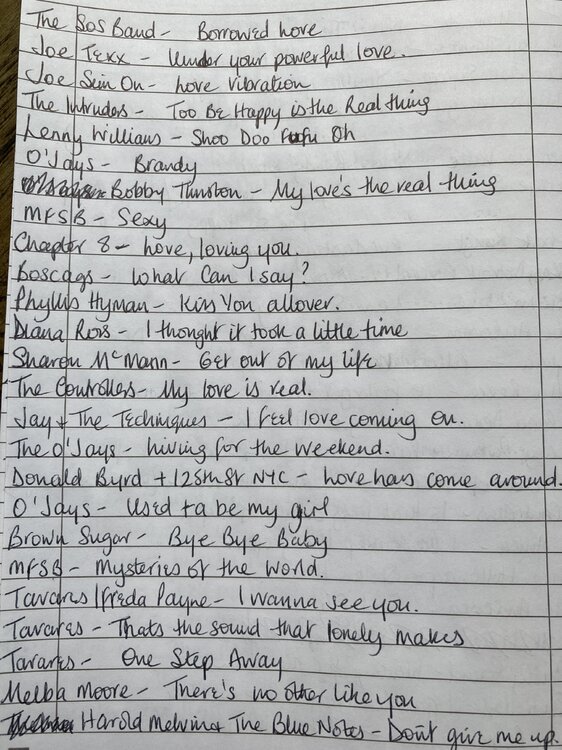 The Sos Band - Borrowed Love
Joe Texx - Under your powerful love.
Joe Sim On - Love vibration
The Intruders - Too Be Happy is the Real thing
Lenny Williams - Shoo Doo Fufu Oh
O'Jays - Brandy
Bobby Thurston - My love's the real thing
MFSB - Sexy
Chapter 8 - Love, loving you.
Boscags - What Can I say?
Phyllis Hyman - Kiss You allover.
Diana Ross - I thought it took a little time
Sharon McMann - Get out of my life
The Controllers - My love is real.
Jay + The Techniques - I feel love coming on.
The O'Jays - Living for the weekend.
Donald Byrd + 125th St NYC - Love has come around.
O'Jays - Used ta be my girl
Brown Sugar - Bye Bye Baby
MFSB - Mysteries of the World.
Tavares / Freda Payne - I wanna see you.
Tavares - Thats the sound that lonely makes
Tavares - One Step Away
Melba Moore - There's no other like you
Harold Melvin + The Blue Notes - Don't give me up.